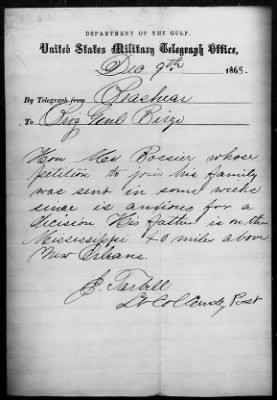 DEPARTMENT OF THE GULF.
United States Military Telegraph Office,
Dec 9th 1863.
By Telegraph from Brashear
To Brig Genl Birge
Hon Mr Rossier whose
petition to join his family
was sent in some weeks
since is anxious for a
decision His father is on the
Mississippi 40 miles above
New Orleans.
J. Tarbell
Lt Col Comdg Post